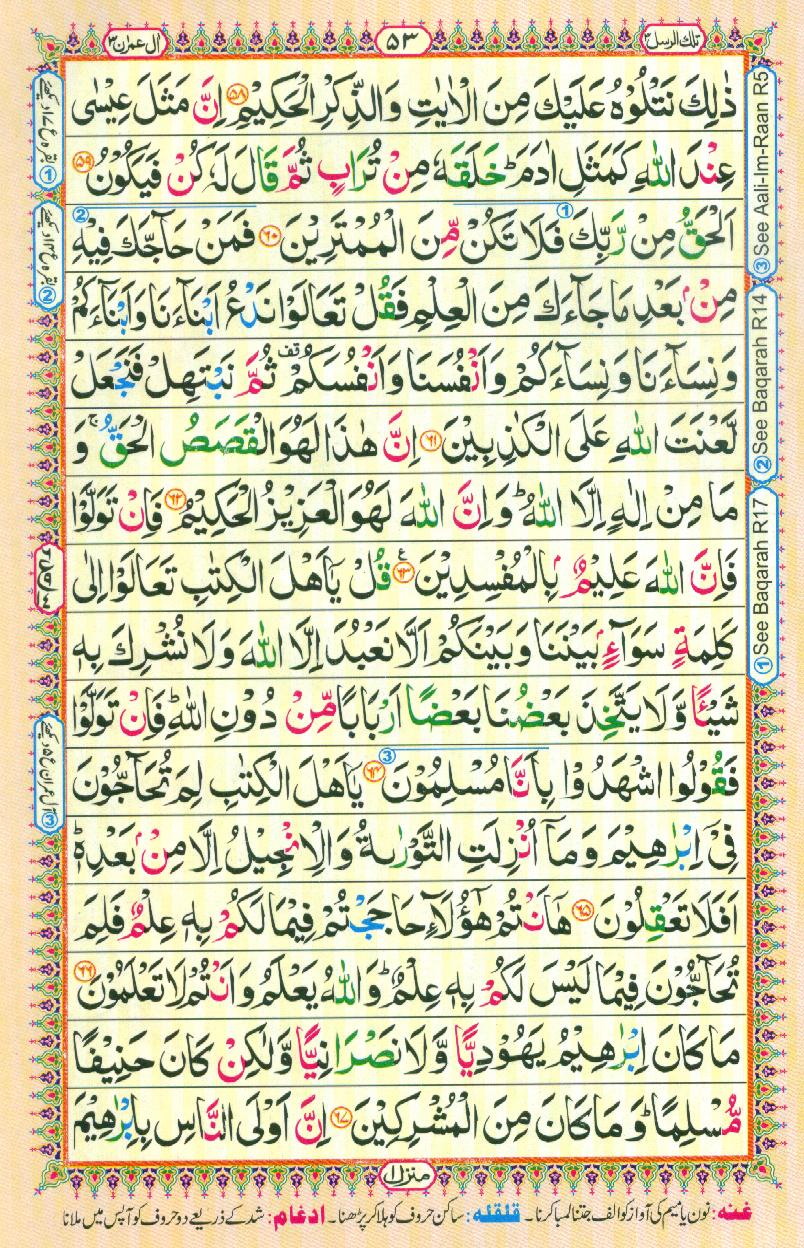 تلك الرسل ٣
٥٣
ال عمرٰن ٣
ذٰلِكَ نَتْلُوْهُ عَلَيْكَ مِنَ الْاٰيٰتِ وَالذِّكْرِ الْحَكِيْمِ ﴿٥٨﴾ اِنَّ مَثَلَ عِيْسٰى
عِنْدَ اللّٰهِ كَمَثَلِ اٰدَمَ ؕ خَلَقَهٗ مِنْ تُرَابٍ ثُمَّ قَالَ لَهٗ كُنْ فَيَكُوْنُ ﴿٥٩﴾
اَلْحَقُّ مِنْ رَّبِّكَ فَلَا تَكُنْ مِّنَ الْمُمْتَرِيْنَ ﴿٦٠﴾ فَمَنْ حَآجَّكَ فِيْهِ
مِنْۢ بَعْدِ مَا جَآءَكَ مِنَ الْعِلْمِ فَقُلْ تَعَالَوْا نَدْعُ اَبْنَآءَنَا وَاَبْنَآءَكُمْ
وَنِسَآءَنَا وَنِسَآءَكُمْ وَاَنْفُسَنَا وَاَنْفُسَكُمْ ۫ ثُمَّ نَبْتَهِلْ فَنَجْعَلْ
لَّعْنَتَ اللّٰهِ عَلَى الْكٰذِبِيْنَ ﴿٦١﴾ اِنَّ هٰذَا لَهُوَ الْقَصَصُ الْحَقُّ ۚ وَ
مَا مِنْ اِلٰهٍ اِلَّا اللّٰهُ ؕ وَاِنَّ اللّٰهَ لَهُوَ الْعَزِيْزُ الْحَكِيْمُ ﴿٦٢﴾ فَاِنْ تَوَلَّوْا
فَاِنَّ اللّٰهَ عَلِيْمٌۢ بِالْمُفْسِدِيْنَ ﴿٦٣﴾ قُلْ يٰۤاَهْلَ الْكِتٰبِ تَعَالَوْا اِلٰى
كَلِمَةٍ سَوَآءٍۢ بَيْنَنَا وَبَيْنَكُمْ اَلَّا نَعْبُدَ اِلَّا اللّٰهَ وَلَا نُشْرِكَ بِهٖ
شَيْـًٔا وَّلَا يَتَّخِذَ بَعْضُنَا بَعْضًا اَرْبَابًا مِّنْ دُوْنِ اللّٰهِ ؕ فَاِنْ تَوَلَّوْا
فَقُوْلُوا اشْهَدُوْا بِاَنَّا مُسْلِمُوْنَ ﴿٦٤﴾ يٰۤاَهْلَ الْكِتٰبِ لِمَ تُحَآجُّوْنَ
فِىْۤ اِبْرٰهِيْمَ وَمَاۤ اُنْزِلَتِ التَّوْرٰىةُ وَالْاِنْجِيْلُ اِلَّا مِنْۢ بَعْدِهٖ ؕ
اَفَلَا تَعْقِلُوْنَ ﴿٦٥﴾ هٰۤاَنْتُمْ هٰۤؤُلَآءِ حَاجَجْتُمْ فِيْمَا لَكُمْ بِهٖ عِلْمٌ فَلِمَ
تُحَآجُّوْنَ فِيْمَا لَيْسَ لَكُمْ بِهٖ عِلْمٌ ؕ وَاللّٰهُ يَعْلَمُ وَاَنْتُمْ لَا تَعْلَمُوْنَ ﴿٦٦﴾
مَا كَانَ اِبْرٰهِيْمُ يَهُوْدِيًّا وَّلَا نَصْرَانِيًّا وَّلٰكِنْ كَانَ حَنِيْفًا
مُّسْلِمًا ؕ وَمَا كَانَ مِنَ الْمُشْرِكِيْنَ ﴿٦٧﴾ اِنَّ اَوْلَى النَّاسِ بِاِبْرٰهِيْمَ
③ See Aali-Im-Raan R5
② See Baqarah R14
① See Baqarah R17
① بقرہ ع ١٧ دیکھئے
② بقرہ ع ١٤ دیکھئے
③ آل عمران ع ٥ دیکھئے
منزل ١
غنه: نون یا میم کی آواز کو الف جتنا لمبا کرنا۔ قلقله: ساکن حروف کو ہلا کر پڑھنا۔ ادغام: شد کے ذریعے دو حروف کو آپس میں ملانا